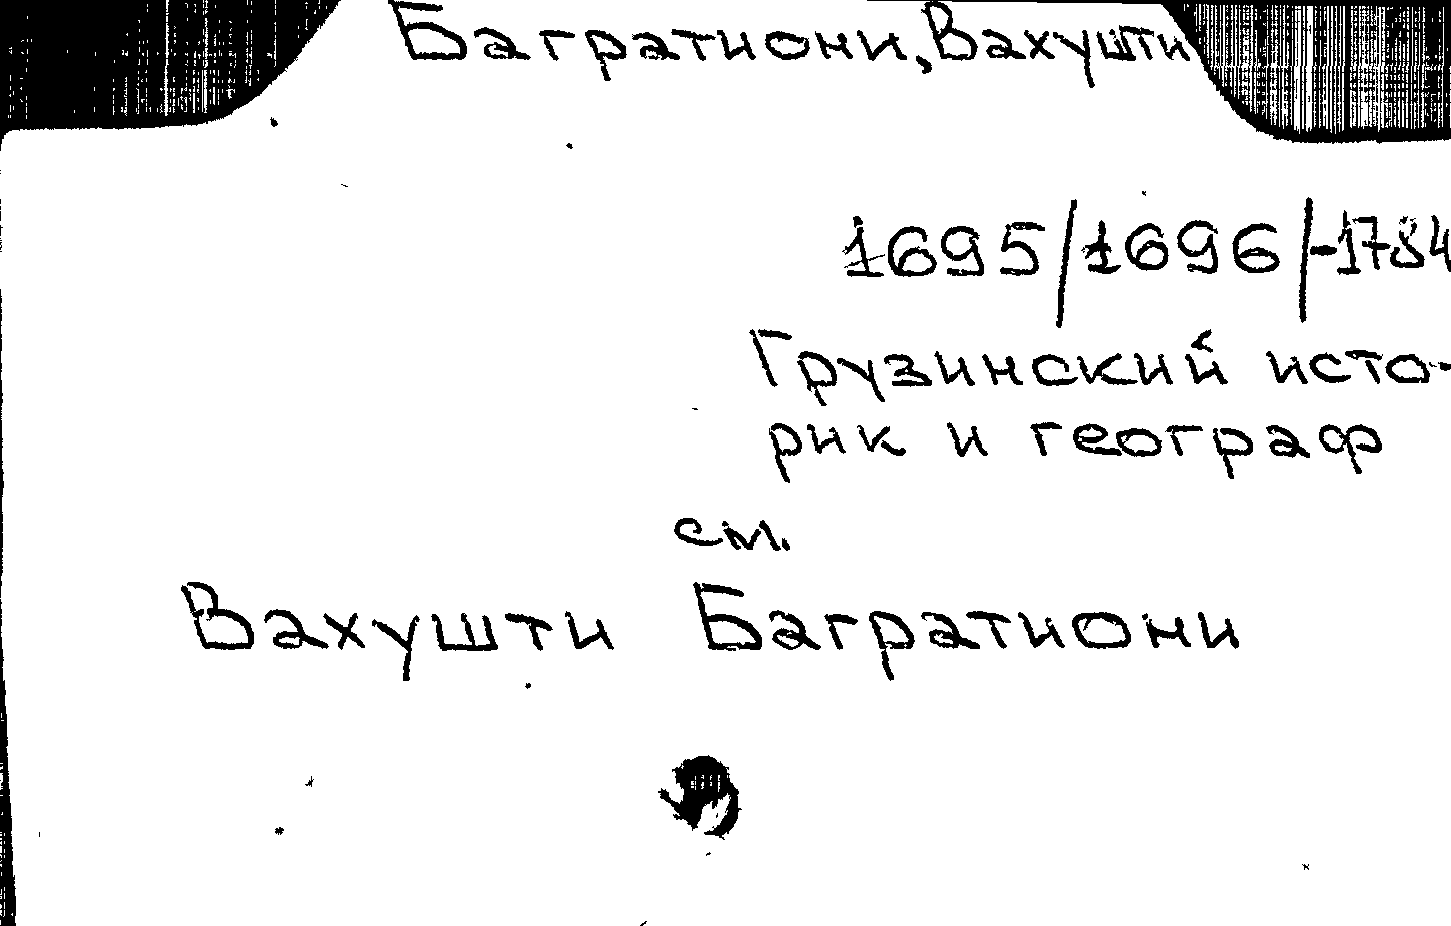 Багратиони, Вахушти
1695/1696/-1784
Грузинский исто-
рик и географ
см.
Вахушти Багратиони